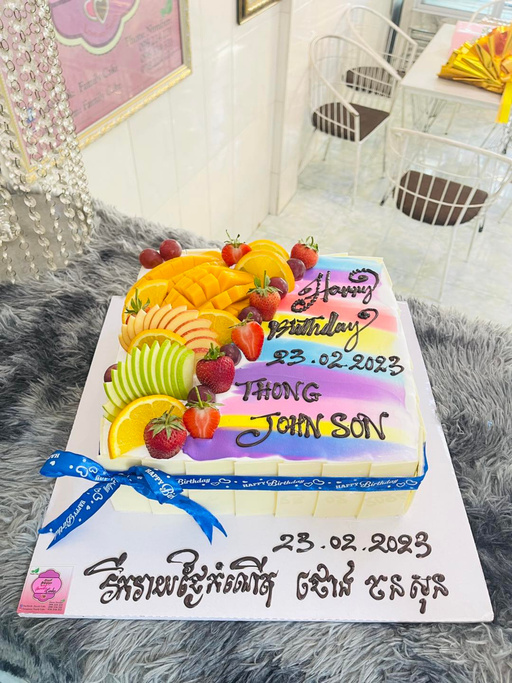 Family Cake
Family Cake
Happy
Birthday
23.02.2023
THONG
JOHN SON
HAPPY Birthday
HAPPY Birthday
23.02.2023
រីករាយថ្ងៃកំណើត ថោង ចនសុន